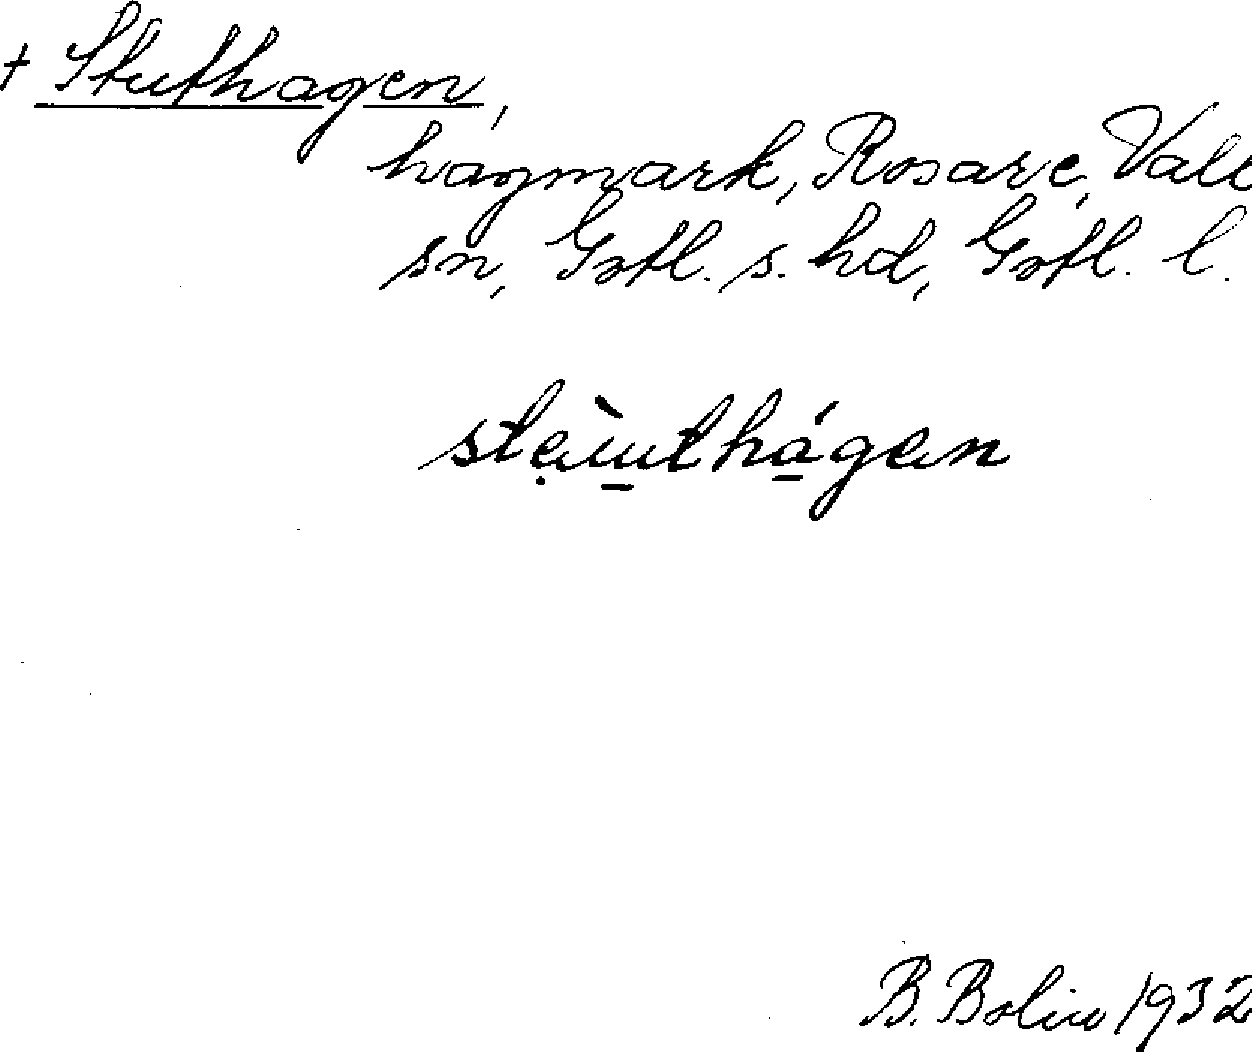 + Stuthagen,
hagmark, Rosarve, Vall
sn, Gotl. s. hd, Gotl. l.
B. Bolin 1932